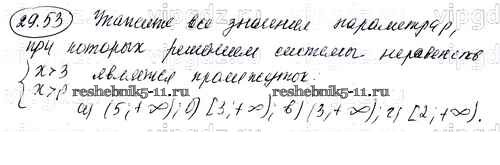 29.53 Укажите все значения параметра p,
при которых решением системы неравенств
{ x > 3 является промежуток:
{ x > p
а) (5; +∞); б) [3; +∞); в) (3; +∞); г) [2; +∞).
reshebnik5-11.ru reshebnik5-11.ru